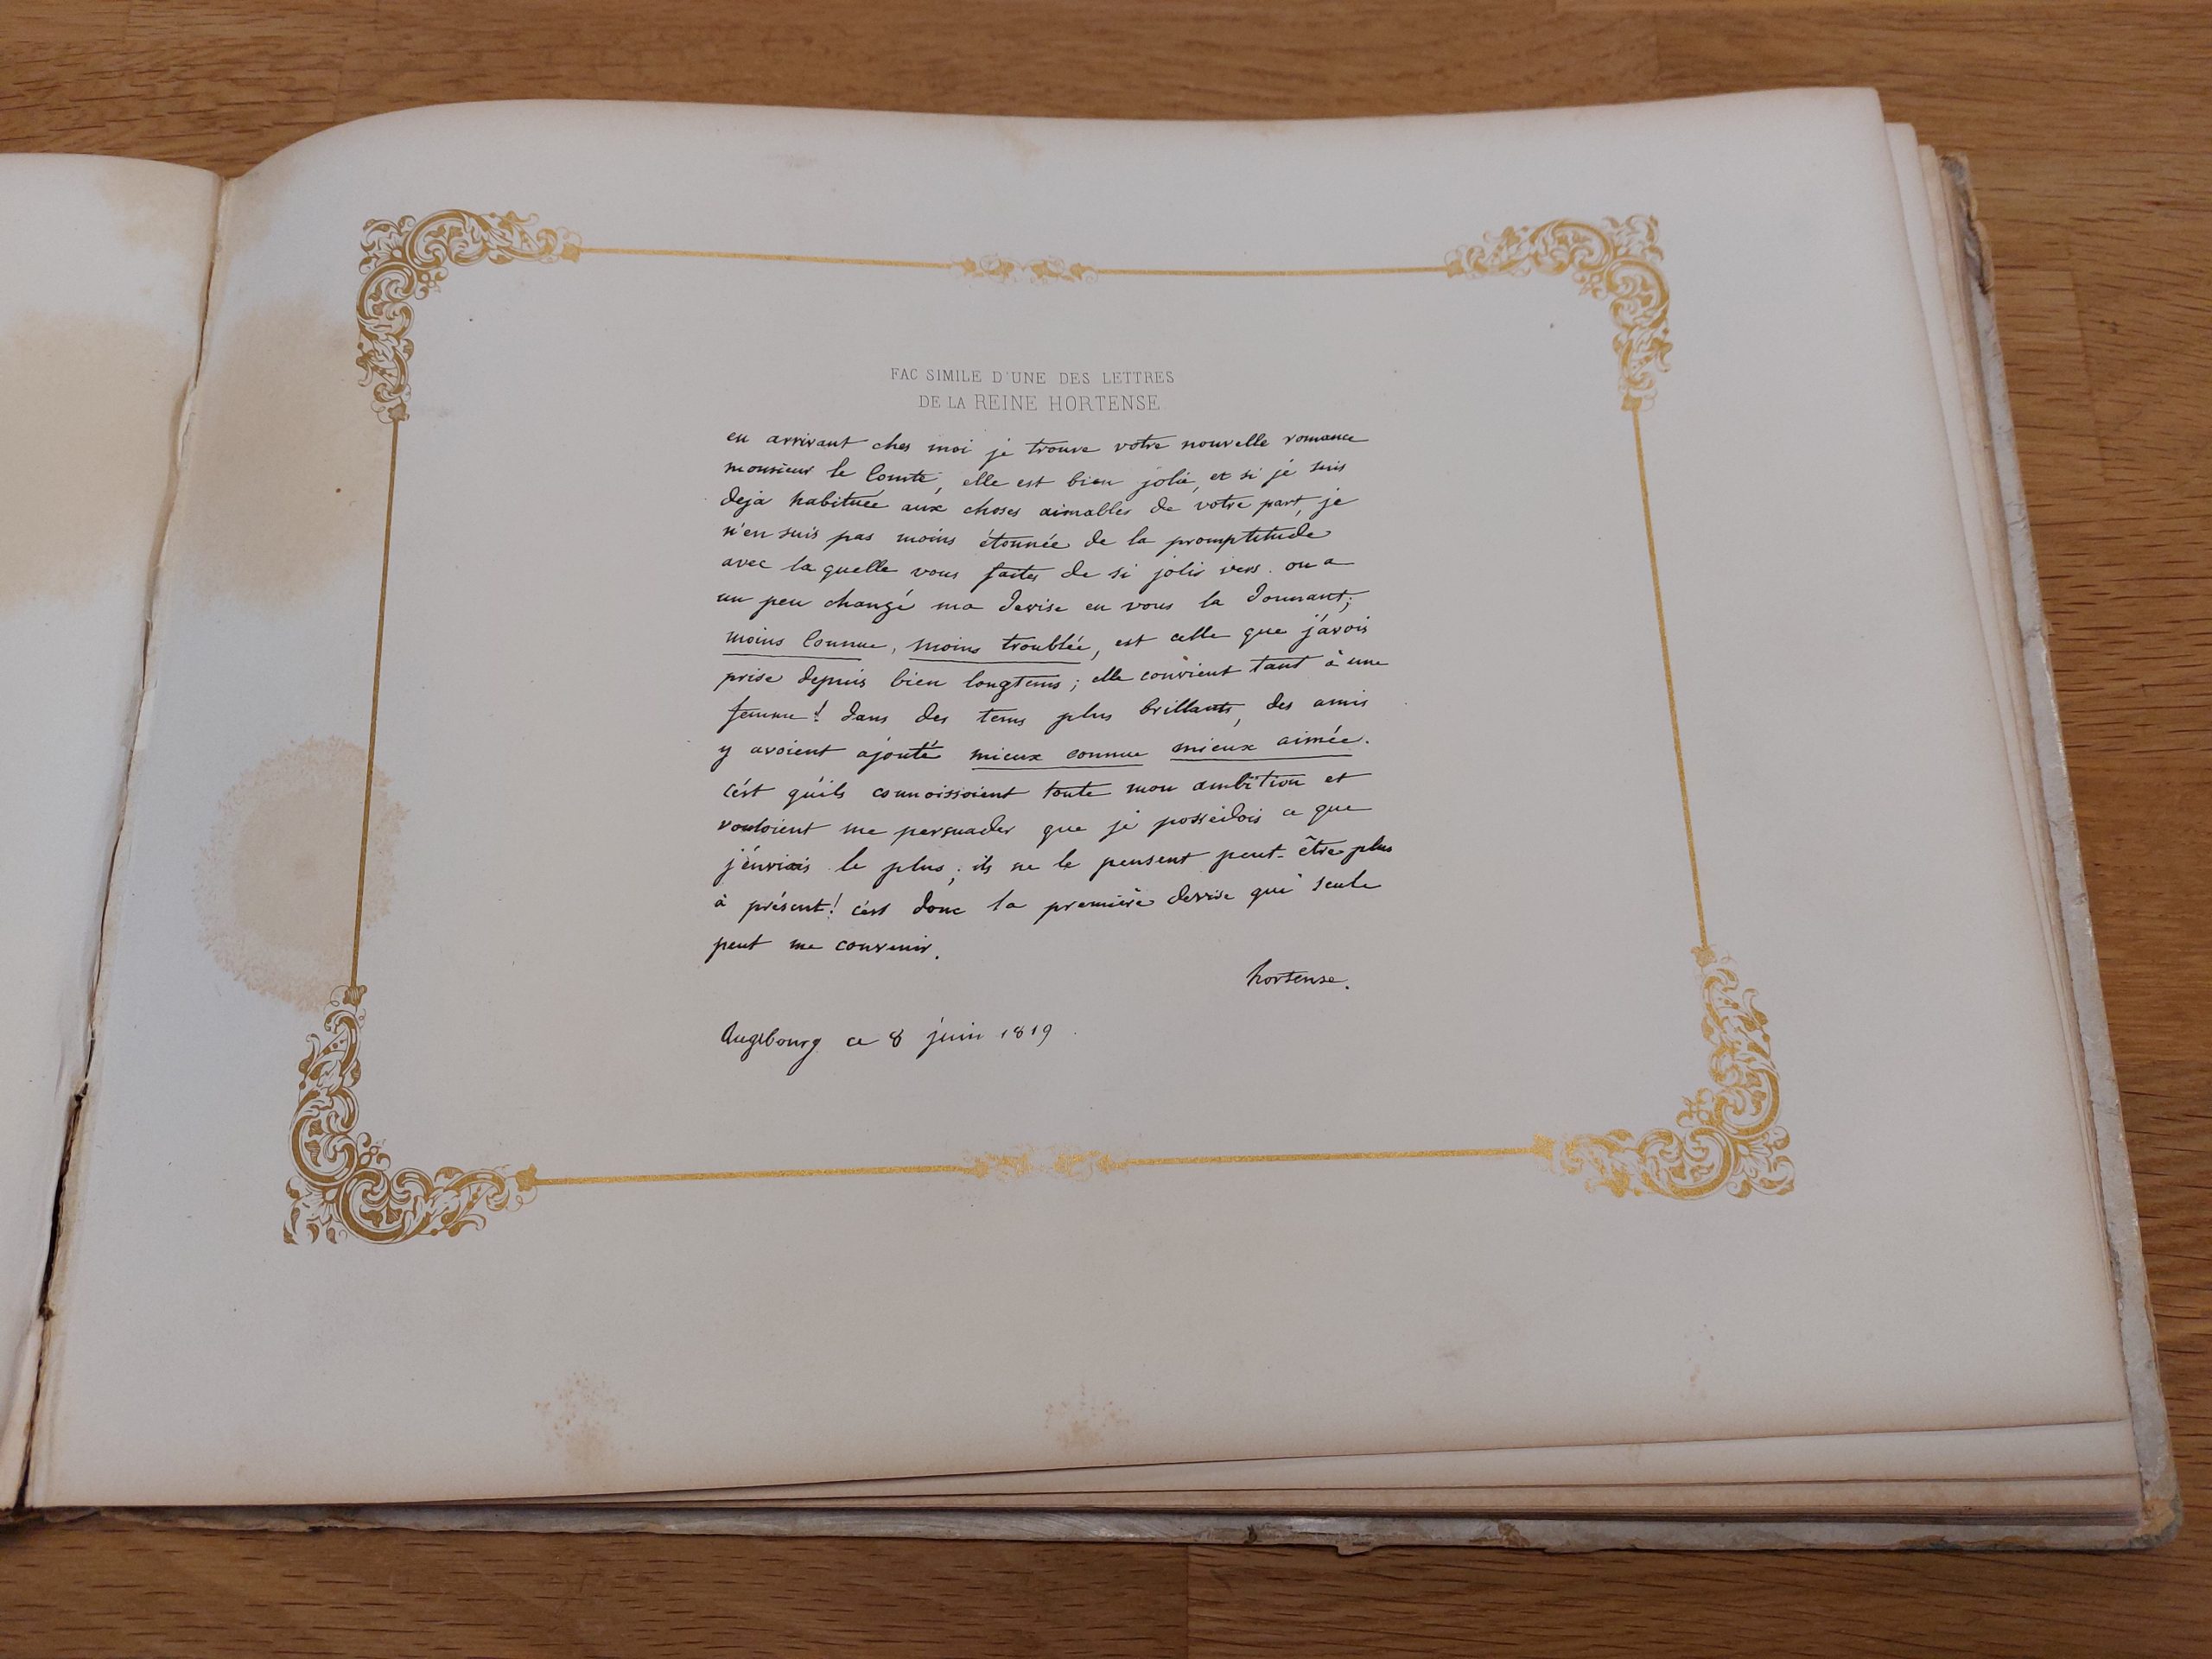 FAC SIMILE D'UNE DES LETTRES
DE LA REINE HORTENSE
en arrivant ches moi je trouve votre nouvelle romance
monsieur le Comte, elle est bien jolie, et si je suis
deja habituée aux choses aimables de votre part, je
n'en suis pas moins étonnée de la promptitude
avec la quelle vous faites de si jolis vers. on a
un peu changé ma devise en vous la donnant;
moins connue, moins troublée, est celle que j'avois
prise depuis bien longtems; elle convient tant à une
femme! dans des tems plus brillants, des amis
y avoient ajouté mieux connue mieux aimée.
c'est qu'ils connoissoient toute mon ambition et
vouloient me persuader que je possédois ce que
j'enviais le plus; ils ne le pensent peut-être plus
à présent! c'est donc la première devise qui seule
peut me convenir.
hortense.
Augsbourg ce 8 juin 1819